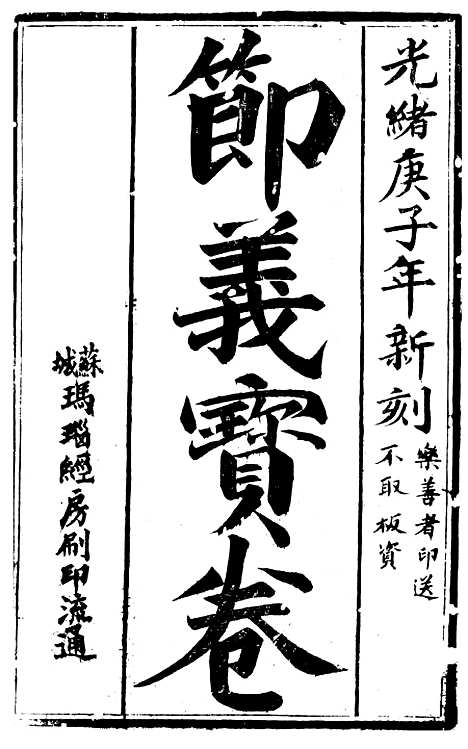 光緒庚子年新刻
樂善者印送
不取板資
節義寶卷
蘇城
瑪瑙經房刷印流通